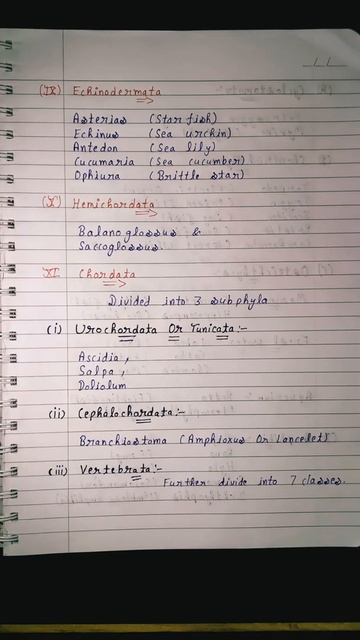 (IX) Echinodermata
Asterias (Star fish)
Echinus (Sea urchin)
Antedon (Sea lily)
Cucumaria (Sea cucumber)
Ophiura (Brittle star)
(X) Hemichordata
Balanoglossus &
Saccoglossus.
XI Chordata
Divided into 3 subphyla
(i) Urochordata Or Tunicata:-
Ascidia,
Salpa,
Doliolum
(ii) Cephalochordata:-
Branchiostoma (Amphioxus Or Lancelet)
(iii) Vertebrata:-
Further divide into 7 classes.